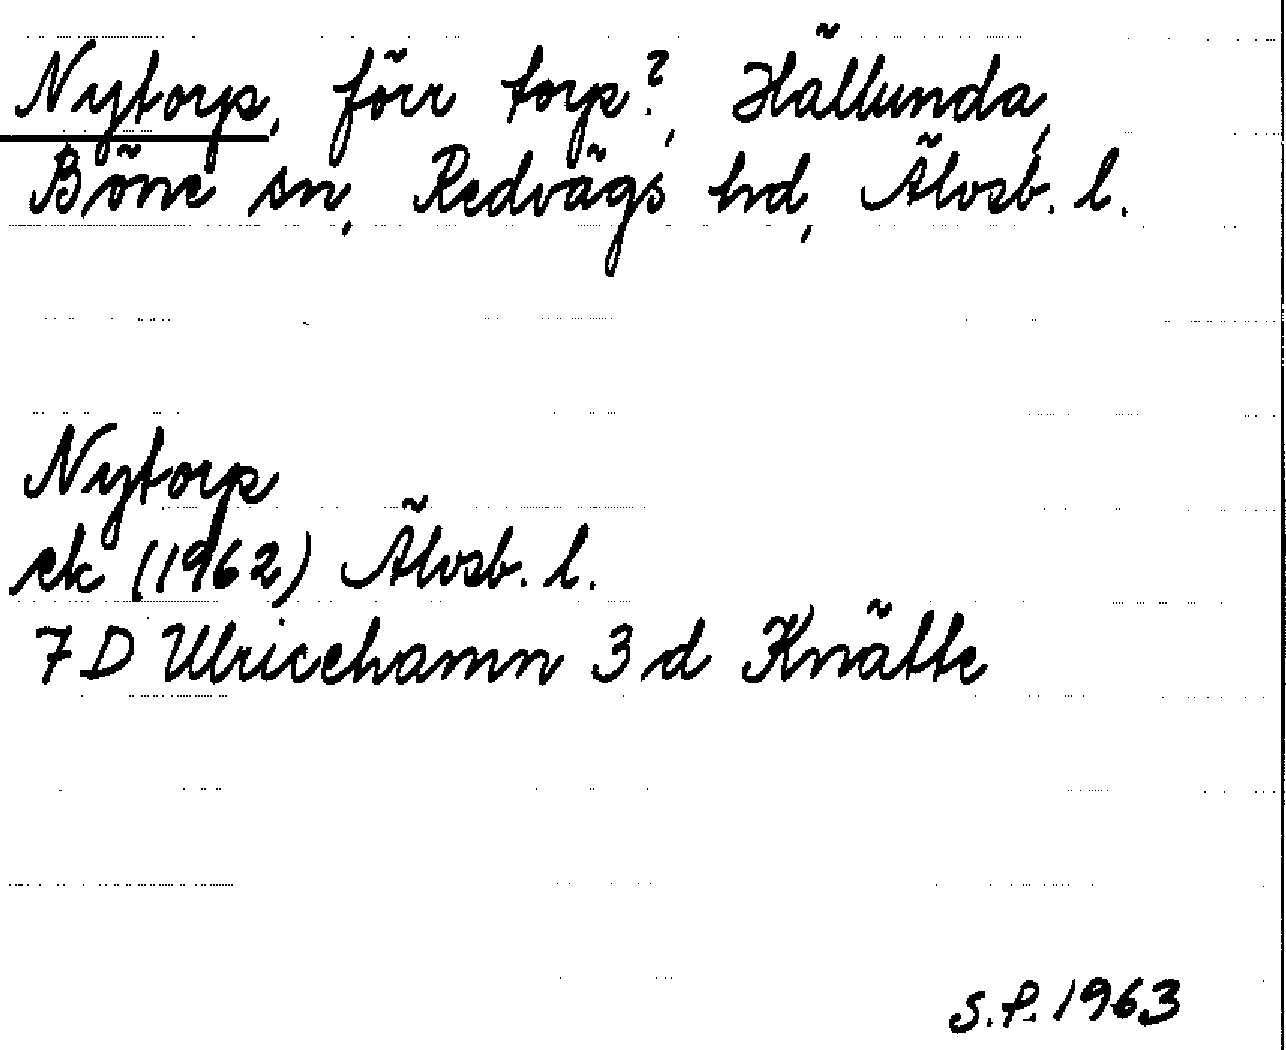 Nytorp, förr torp?, Hällunda,
Böne sn, Redvägs hrd, Älvsb. l.
Nytorp
ek (1962) Älvsb. l.
7 D Ulricehamn 3 d Knätte
S.P. 1963